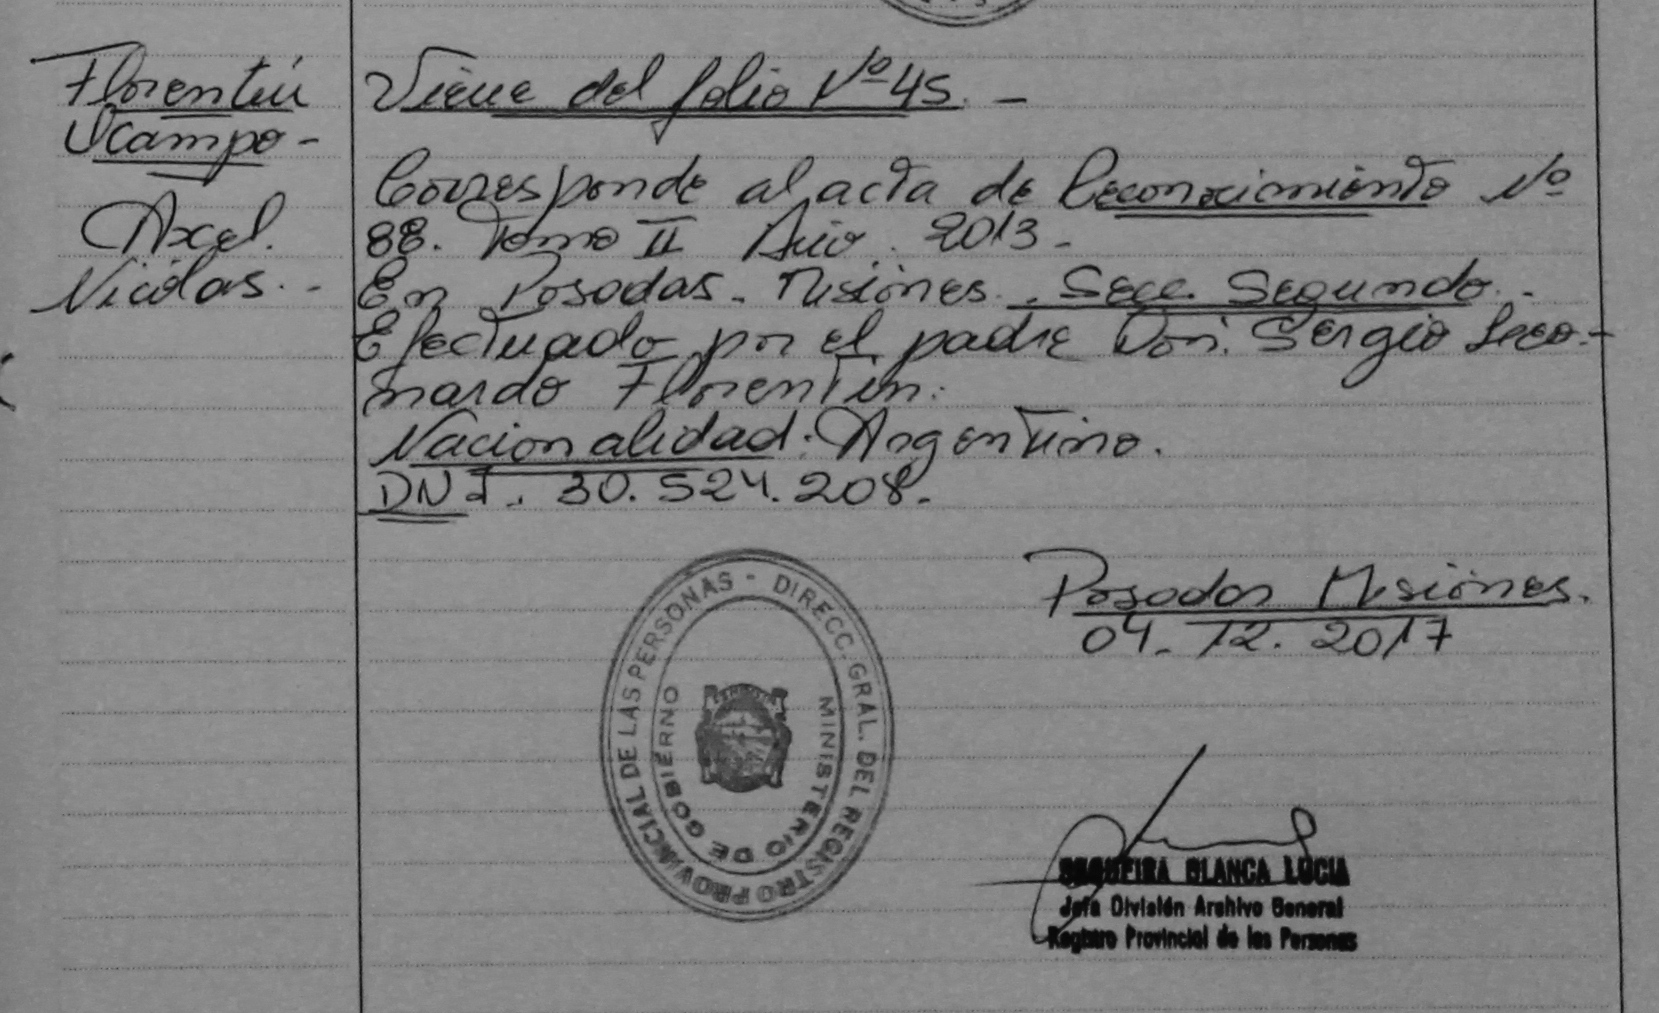 Florentín
Ocampo -
Axcel.
Nicolas. -
Viene del folio Nº 45. -
Corresponde al acta de Reconocimiento Nº
88. Tomo II Año. 2013 -
En Posadas - Misiones. Secc. Segundo. -
Efectuado por el padre Don. Sergio Leo-
nardo Florentín.
Nacionalidad. Argentino.
DNI. 30.524.208. -
Posadas Misiones.
04. 12. 2017
DIRECC. GRAL. DEL REGISTRO PROVINCIAL DE LAS PERSONAS -
MINISTERIO DE GOBIERNO
SEQUEIRA BLANCA LUCIA
Jefa División Archivo General
Registro Provincial de las Personas